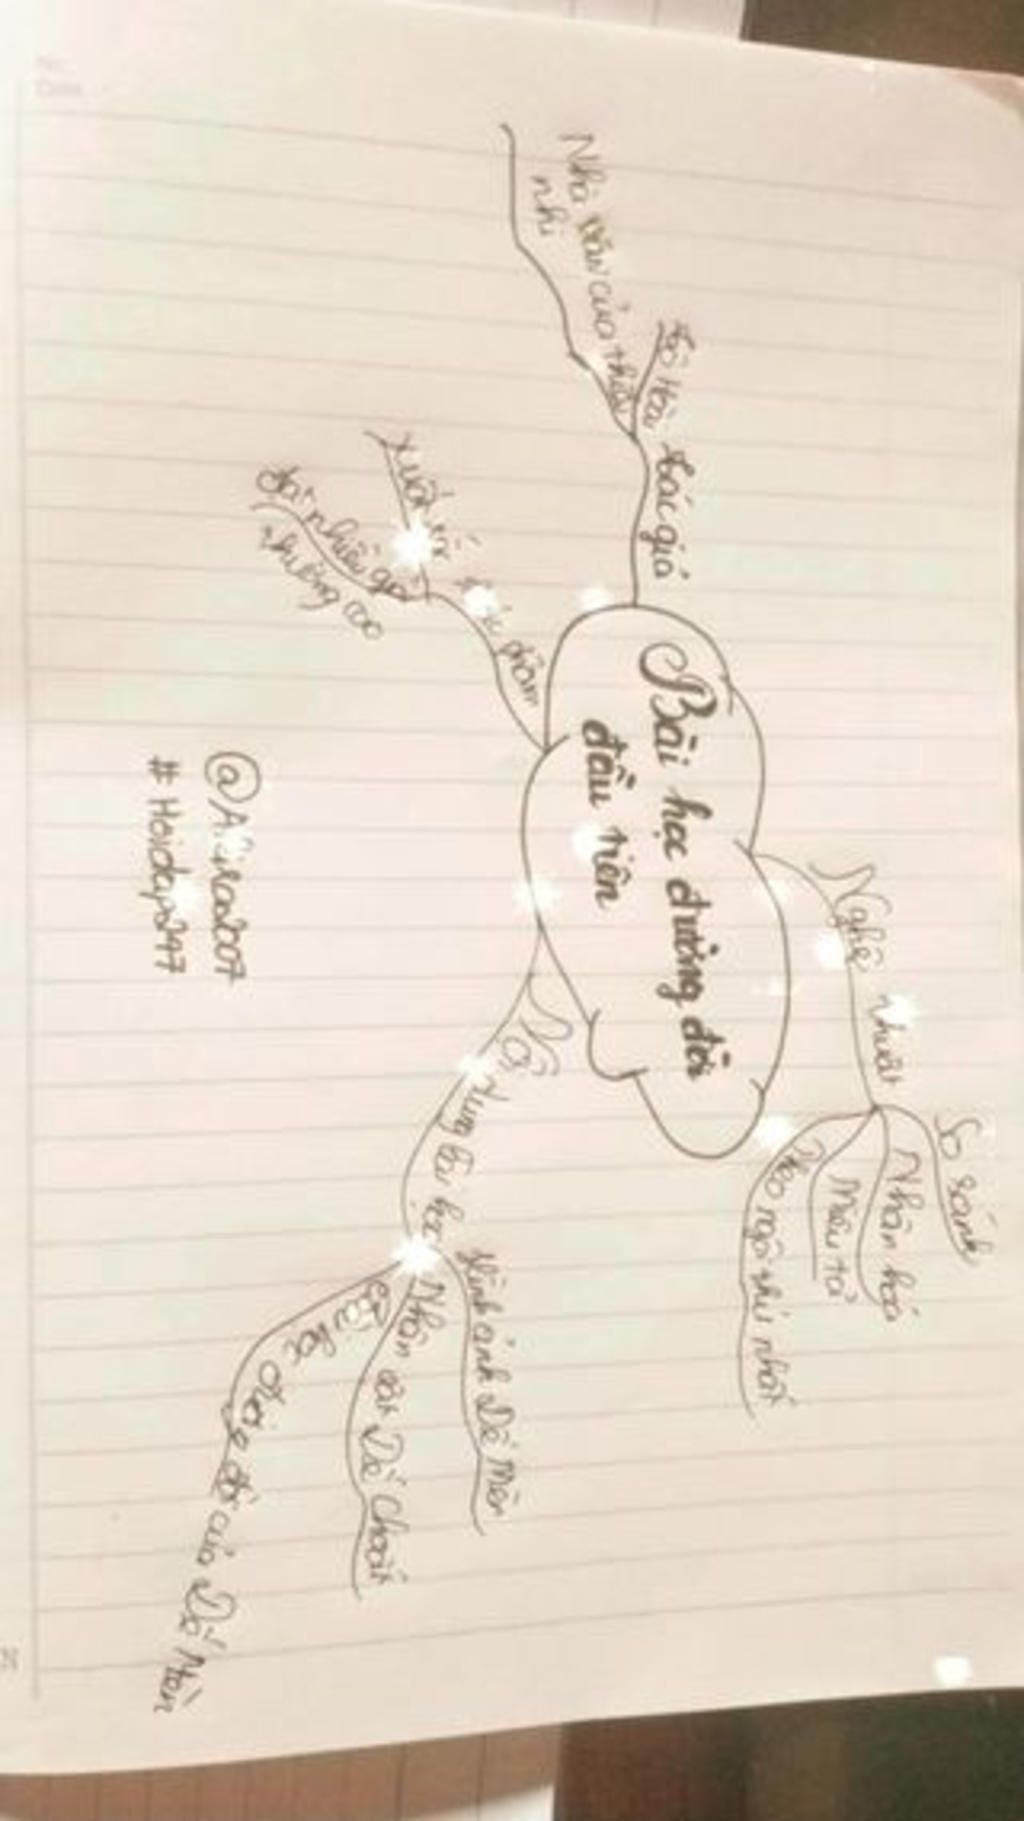 Bài học đường đời
đầu tiên
Tác giả
Tô Hoài
Nhà văn của thiếu
nhi
Tác phẩm
Xuất xứ
nhiều giải
thưởng cao
Nghệ thuật
So sánh
Nhân hoá
Miêu tả
ngôi thứ nhất
Nội
dung bài học
Hình ảnh Dế Mèn
Nhân vật Dế Choắt
Bài học đường đời của Dế Mèn
# Hoidap247
No.
Date